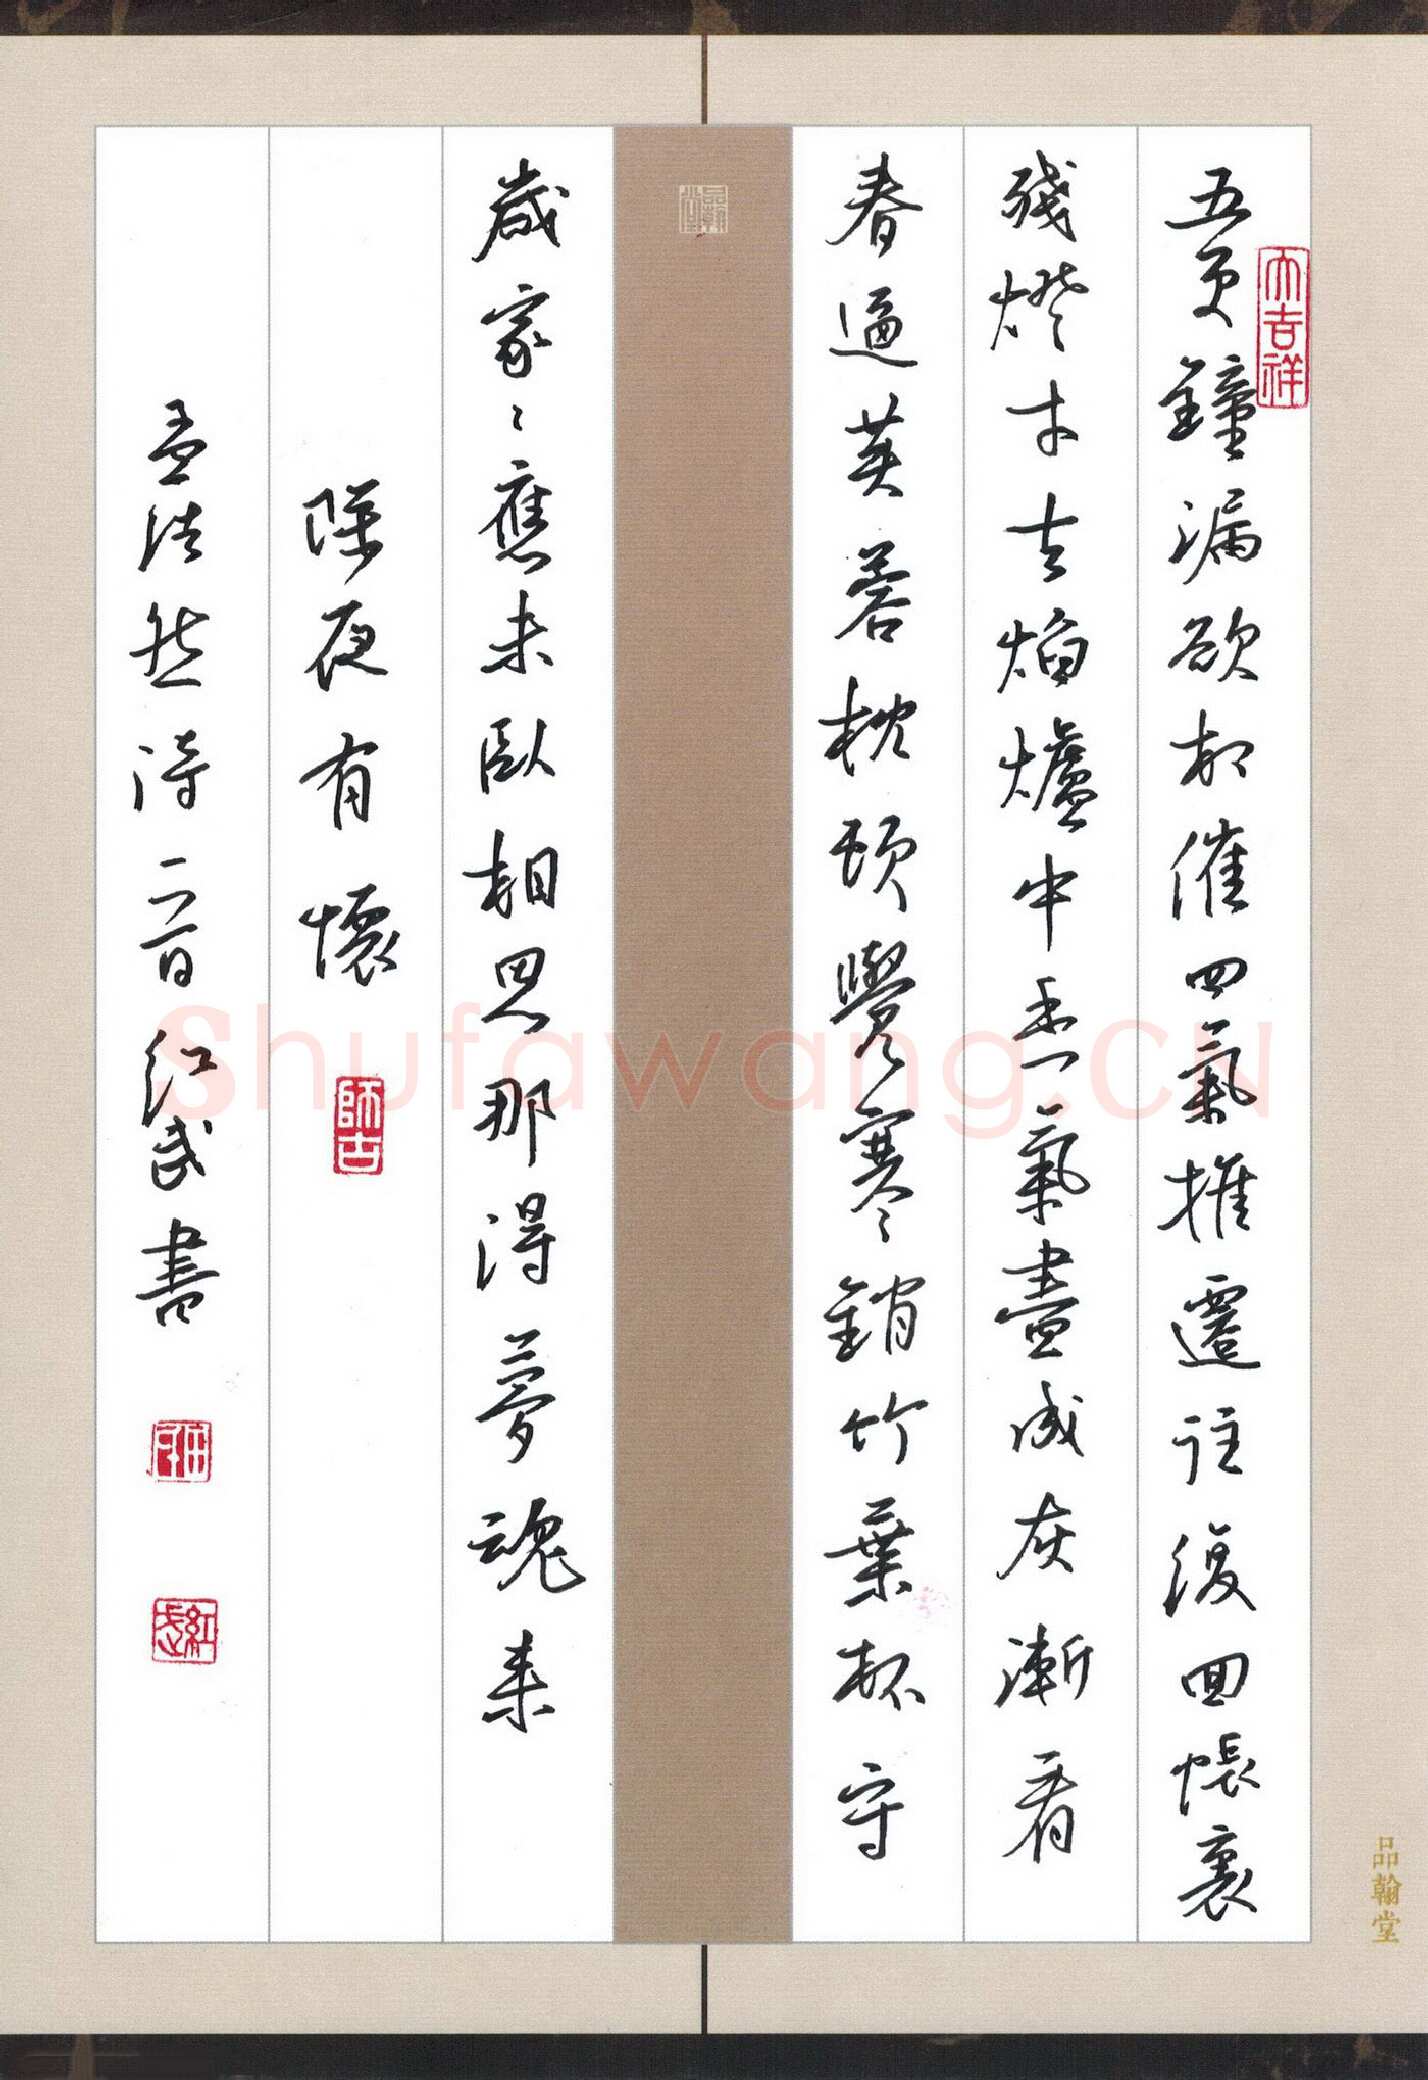 五更鐘漏欲相催四氣推遷往復回帳裏
殘燈才去焰爐中香氣盡成灰漸看
春逼芙蓉枕頓覺寒銷竹葉杯守
歲家〻應未臥相思那得夢魂來
除夜有懷
孟浩然詩一首紅武書
大吉祥
師古
品翰堂
Shufawang.CN